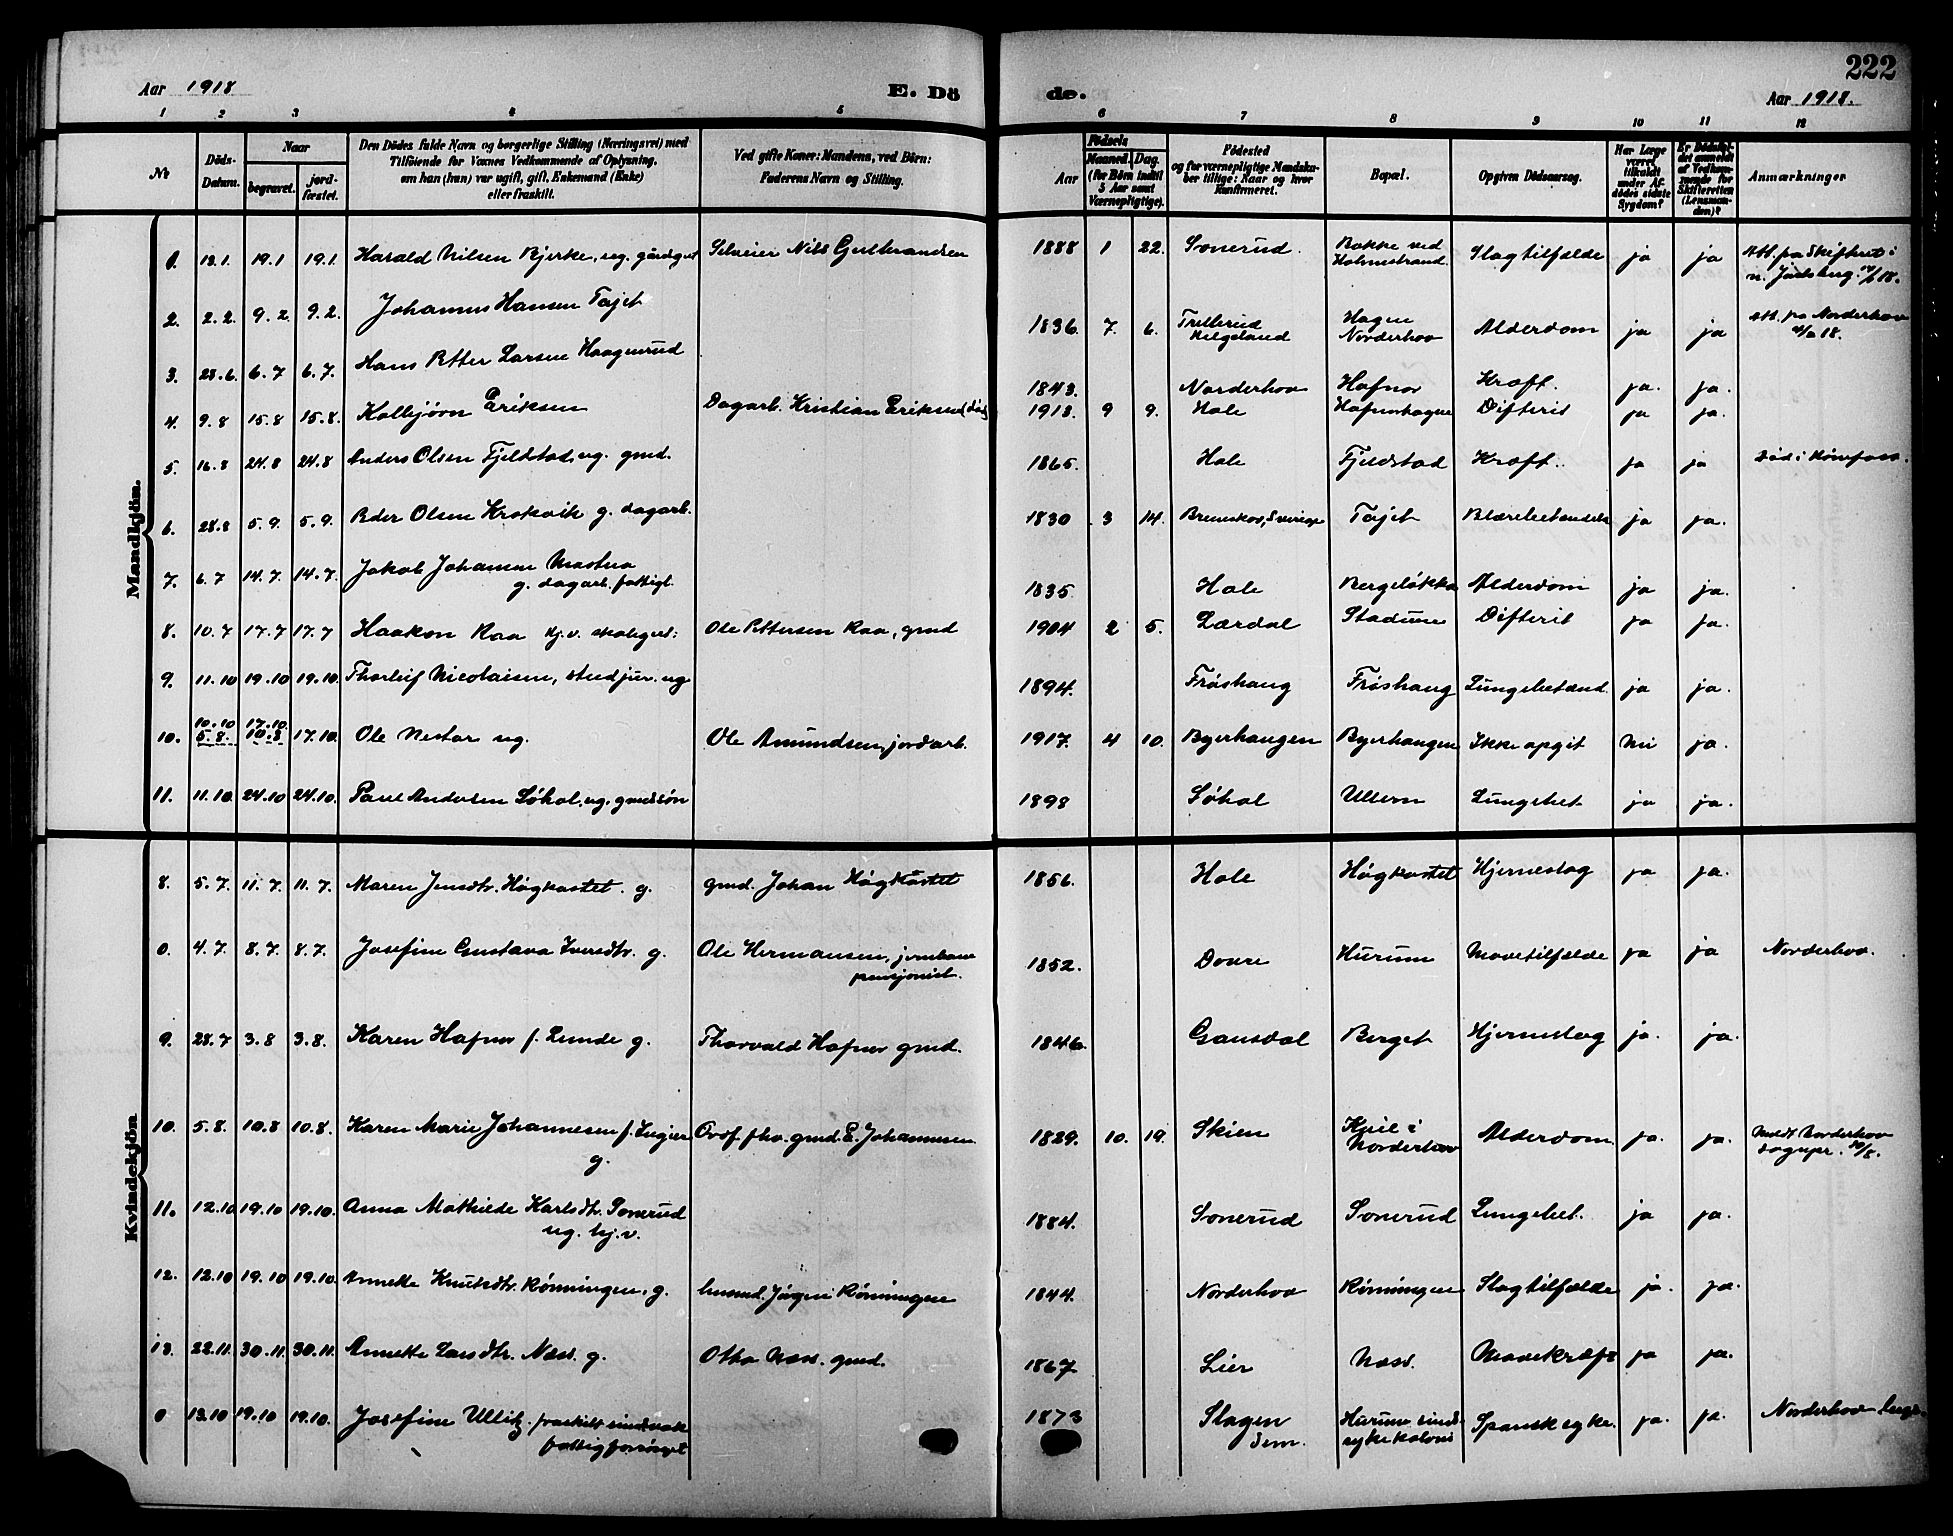 222
Aar 1918
E. Dö
de.
Aar 1918.
1 2 3 4 5 6 7 8 9 10 11 12
Nr
Döds-
Datum.
Naar
begravet.
jord-
fæstet.
Den Dödes fulde Navn og borgerlige Stilling (Næringsvei) med
Tilföiende for Voxnes Vedkommende af Oplysning,
om han (hun) var ugift, gift, Enkemand (Enke)
eller fraskilt.
Ved gifte Koner: Mandens, ved Börn:
Faderens Navn og Stilling.
Födsels
Aar
Maaned. Dag.
(for Börn indtil
5 Aar samt
Værnepligtige).
Födested
og for værnepligtige Mandska-
ber tillige: Naar og hvor
konfirmeret.
Bopæl.
Opgiven Dödsaarsag.
Har Læge
været
tilkaldt
under Af-
dödes sidste
Sygdom?
Er Dödsfal-
det anmeldt
af Vedkom-
mende for
Skifteretten
(Lensman-
den)?
Anmærkninger
Mandkjön.
1. 13.1. 19.1 19.1. Harald Nilsen Bjerke, ug. gårdgut Selveier Nils Gulbrandsen 1888 1 22. Sonerud. Bakke ved
Holmestrand. Slagtilfælde ja ja Att. fra Skifteret i
n. Jarlsberg
2. 2.2. 9.2. 9.2. Johannes Hansen Tajet 1836. 7. 6. Trellerud
Helgeland Hagen
Norderhov Alderdom ja ja Att. fra Norderhov
3. 28.6. 6.7 6.7. Hans Petter Larsen Haagenrud 1843. Norderhov Hafnor Kræft. ja. ja.
4. 9.8 15.8 15.8. Kolbjørn Eriksen Dagarb. Kristian Eriksen 1913. 9 9. Hole Hafnorhagen Difterit ja ja.
5. 16.8 24.8 24.8 Anders Olsen Fjeldstad, ug. gmd. 1865. Hole Fjeldstad Kræft. ja ja Död i Hönefoss.
6. 28.8 5.9. 5.9. Peder Olsen Krokvik g. dagarb. 1830 3 14. Sverige Tajet Blærebetændelse ja ja.
7. 6.7 14.7. 14.7. Jakob Johansen
g. dagarb. fattigl. 1835. Hole Bergeløkka Alderdom ja ja.
8. 10.7 17.7 17.7 Haakon Raa hj.v. skolegut. Ole Pettersen Raa, gmd 1904 2 5. Lærdal Stadum Difterit ja ja.
9. 11.10 19.10 19.10. Thorleif Nicolaisen, stud jur. ug 1894. Frøshaug Frøshaug Lungebetænd. ja ja.
10. 10.10
5.8. 17.10
10.8 17.10. Ole Nestor ug. Ole Amundsen, jordarb. 1917. 4 10. Byerhaugen Byerhaugen Ikke opgit nei ja.
11. 11.10. 24.10 24.10. Paul Andersen Løhol, ug. gmdssøn 1898 Søhol Ullern Lungebet ja ja.
Kvindekjön
8. 5.7. 11.7. 11.7. Maren Jensdtr. Høgkastet. g. gmd. Johan Høgkastet 1856. Hole Høgkastet Hjerneslag ja ja.
0. 4.7. 8.7. 8.7. Josefine Gustava Iversdtr. g. Ole Hermansen, jernbane
pensjonist. 1852. Dovre Hurum Mavetilfælde ja ja Norderhov.
9. 28.7 3.8 3.8. Karen Hafnor f. Lunde g. Thorvald Hafnor gmd. 1846. Gausdal Berget Hjerneslag ja. ja.
10. 5.8. 10.8 10.8. Karen Marie Johannesen f.
g. gmd. E. Johannesen 1829. 10. 19. Skien
Norderhov Alderdom. ja. ja. Meldt Norderhov
sognepr.
11. 12.10 19.10 19.10. Anna Mathilde Karlsdtr. Sonerud
ug. hj.v. 1884. Sonerud Sonerud Lungebet. ja ja.
12. 12.10 19.10 19.10. Annette Knutsdtr. Rønningen, g. husmd. Jörgen Rønningen 1844. Norderhov Rønningen Slagtilfælde ja. ja.
13. 22.11. 30.11. 30.11. Annette Larsdtr. Næss. g. Otto Næss. gmd. 1867 Lier Næss. Mavekræft ja ja.
0 13.10 19.10 19.10. Josefine Ullitz fraskilt sindssvak
fattigforsörget 1873 Slagen
Sem. Hurum sinds-
sykekoloni Spansk syke. ja. ja. Norderhov